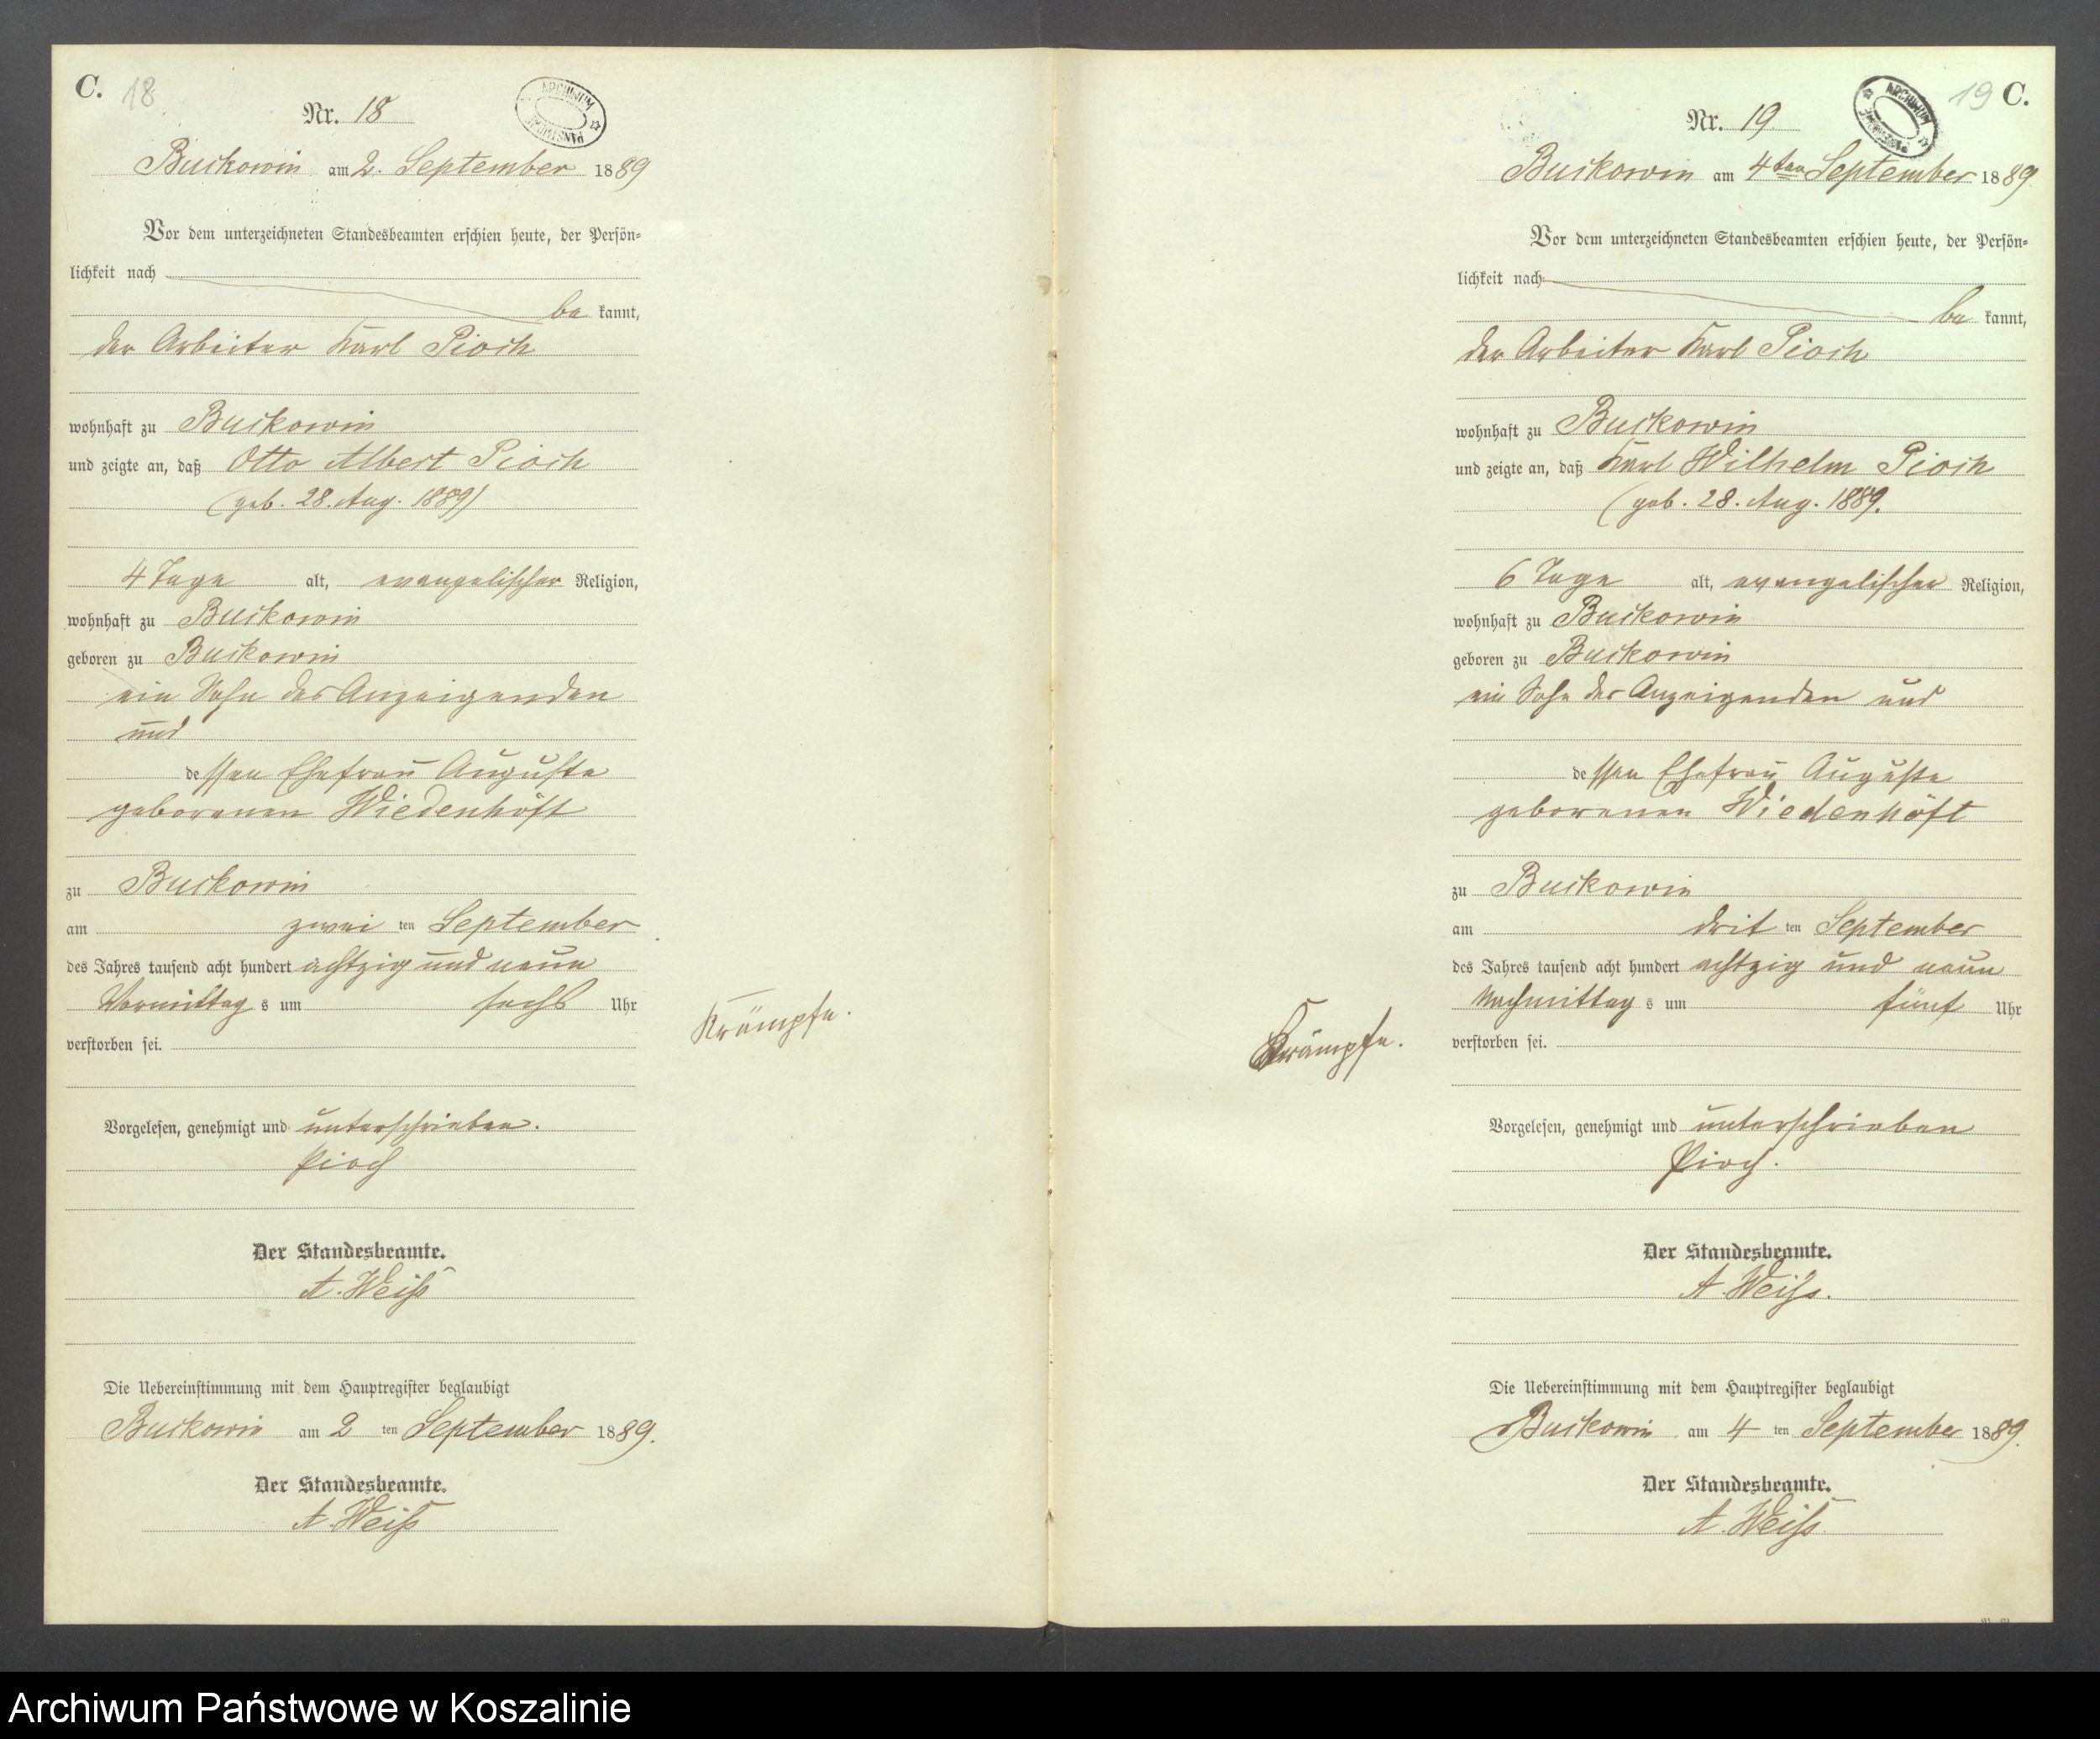 C. 18
ARCHIWUM PAŃSTWOWE
Nr. 18
Buckowin am 2. September 1889
Vor dem unterzeichneten Standesbeamten erschien heute, der Persön-
lichkeit nach
be kannt,
der Arbeiter Karl Pioch
wohnhaft zu Buckowin
und zeigte an, daß Otto Albert Pioch
(geb. 28. Aug. 1889)
4 Tage alt, evangelischer Religion,
wohnhaft zu Buckowin
geboren zu Buckowin
ein Sohn des Anzeigenden
und
dessen Ehefrau Auguste
geborenen Wiedenhöft
zu Buckowin
am zwei ten September
des Jahres tausend acht hundert achtzig und neun
Vormittag s um sechs Uhr
verstorben sei.
Krämpfe.
Vorgelesen, genehmigt und unterschrieben.
Pioch
Der Standesbeamte.
A. Weiß
Die Uebereinstimmung mit dem Hauptregister beglaubigt
Buckowin am 2 ten September 1889.
Der Standesbeamte.
A. Weiß
19 C.
ARCHIWUM PAŃSTWOWE
Nr. 19.
Buckowin am 4ten September 1889.
Vor dem unterzeichneten Standesbeamten erschien heute, der Persön-
lichkeit nach
be kannt,
der Arbeiter Karl Pioch
wohnhaft zu Buckowin
und zeigte an, daß Karl Wilhelm Pioch
(geb. 28. Aug. 1889.
6 Tage alt, evangelischer Religion,
wohnhaft zu Buckowin
geboren zu Buckowin
ein Sohn des Anzeigenden und
dessen Ehefrau Auguste
geborenen Wiedenhöft
zu Buckowin
am drit ten September
des Jahres tausend acht hundert achtzig und neun
Nachmittag s um fünf Uhr
verstorben sei.
Krämpfe.
Vorgelesen, genehmigt und unterschrieben
Pioch.
Der Standesbeamte.
A. Weiß.
Die Uebereinstimmung mit dem Hauptregister beglaubigt
Buckowin am 4 ten September 1889.
Der Standesbeamte.
A. Weiß.
Archiwum Państwowe w Koszalinie